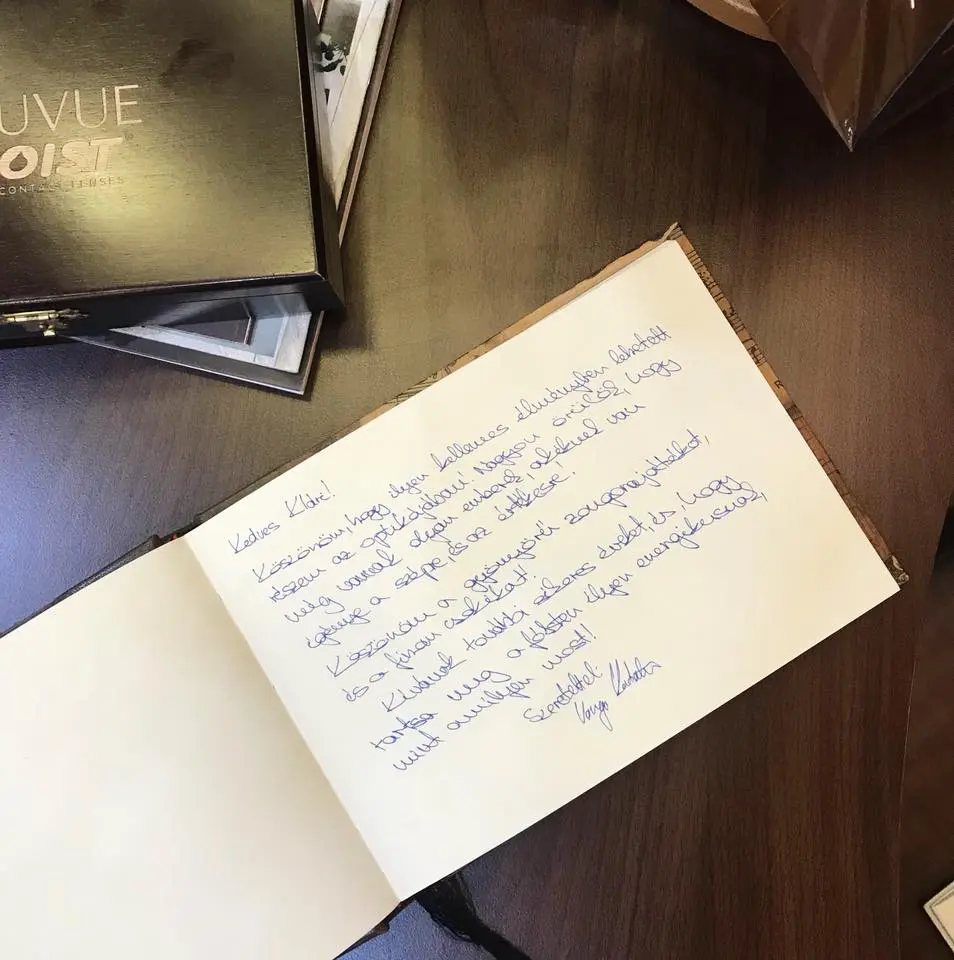 UVUE
OIST
CONTACT LENSES
Kedves Klári!
Köszönöm, hogy ilyen kellemes élményben lehetett
részem az optikájában! Nagyon örülök, hogy
még vannak olyan emberek, akiknek van
igénye a szépre és az értékesre!
Köszönöm a gyönyörű zongorajátékot,
és a finom sütiket!
Kívánok további sikeres éveket, és, hogy
tartsa meg a jóisten ilyen energikusnak,
mint amilyen most!
Szeretettel:
Varga